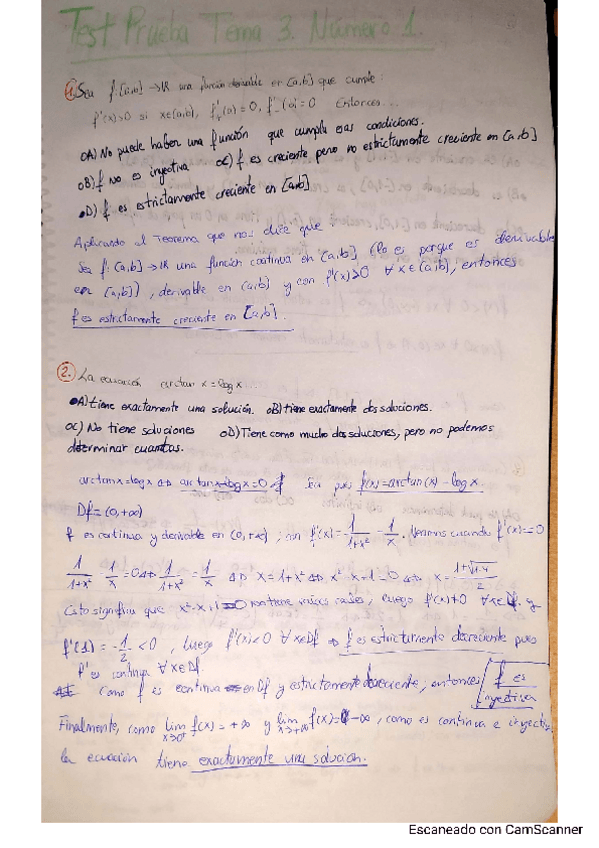 Test Prueba Tema 3. Número 1.
1. Sea f: [a,b] → IR una función derivable en [a,b] que cumple:
f'(x)>0 si x∈(a,b), f'₊(a)=0, f'₋(b)=0 Entonces...
OA) No puede haber una función que cumpla esas condiciones.
OB) f no es inyectiva OC) f es creciente pero no estrictamente creciente en [a,b]
•D) f es estrictamente creciente en [a,b]
Aplicando el Teorema que nos dice que:
Sea f: [a,b] → IR una función continua en [a,b] (lo es porque es derivable
en [a,b]), derivable en (a,b) y con f'(x)>0 ∀x∈(a,b), entonces
f es estrictamente creciente en [a,b].
2. La ecuación arctan x = log x
•A) tiene exactamente una solución. OB) tiene exactamente dos soluciones.
OC) No tiene soluciones OD) Tiene como mucho dos soluciones, pero no podemos
determinar cuantas.
arctan x = log x ⇔ arctan x - log x = 0 Sea pues f(x) = arctan(x) - log x.
Df = (0,+∞)
f es continua y derivable en (0,+∞), con f'(x) = 1/(1+x²) - 1/x. Veamos cuando f'(x) = 0
1/(1+x²) - 1/x = 0 ⇔ 1/(1+x²) = 1/x ⇔ x = 1+x² ⇔ x² - x + 1 = 0 ⇔ x = (1±√(1-4))/2
Esto significa que x²-x+1=0 no tiene raíces reales, luego f'(x)≠0 ∀x∈Df. y
f'(1) = -1/2 < 0, luego f'(x)<0 ∀x∈Df ⇒ f es estrictamente decreciente pues
f' es continua ∀x∈Df.
Como f es continua en Df y estrictamente decreciente, entonces f es
inyectiva
Finalmente, como lim x→0⁺ f(x) = +∞ y lim x→+∞ f(x) = -∞, como es continua e inyectiva,
la ecuación tiene exactamente una solución.
Escaneado con CamScanner